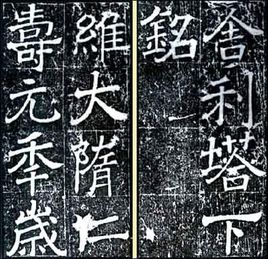 舎利塔下
銘
維大隋仁
壽元年歳